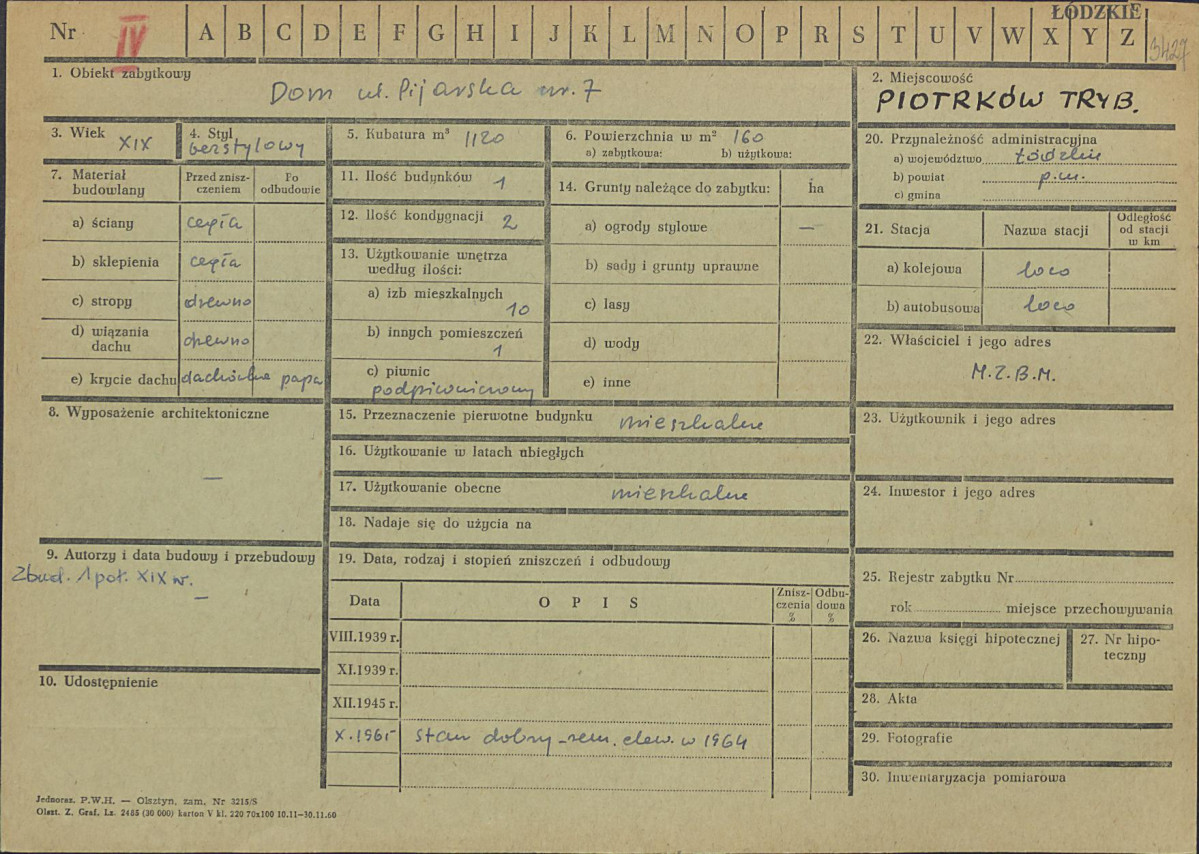 Nr IV A B C D E F G H I J K L M N O P R S T U V W X Y Z
ŁÓDZKIE
3427
1. Obiekt zabytkowy
Dom ul. Pijarska nr. 7
2. Miejscowość
PIOTRKÓW TRYB.
3. Wiek XIX
4. Styl
bezstylowy
5. Kubatura m³ 1120
6. Powierzchnia w m² 160
a) zabytkowa: b) użytkowa:
7. Materiał budowlany
Przed zniszczeniem
Po odbudowie
a) ściany cegła
b) sklepienia cegła
c) stropy drewno
d) wiązania dachu drewno
e) krycie dachu dachówka papa
8. Wyposażenie architektoniczne
—
9. Autorzy i data budowy i przebudowy
Zbud. 1 poł. XIX w.
—
10. Udostępnienie
11. Ilość budynków 1
12. Ilość kondygnacji 2
13. Użytkowanie wnętrza
według ilości:
a) izb mieszkalnych
10
b) innych pomieszczeń
1
c) piwnic
podpiwniczony
14. Grunty należące do zabytku: ha
a) ogrody stylowe —
b) sady i grunty uprawne
c) lasy
d) wody
e) inne
15. Przeznaczenie pierwotne budynku mieszkalne
16. Użytkowanie w latach ubiegłych
17. Użytkowanie obecne mieszkalne
18. Nadaje się do użycia na
19. Data, rodzaj i stopień zniszczeń i odbudowy
Data OPIS Zniszczenia % Odbudowa %
VIII.1939 r.
XI.1939 r.
XII.1945 r.
X.1965 stan dobry - rem. elew. w 1964
20. Przynależność administracyjna
a) województwo łódzkie
b) powiat p.m.
c) gmina
21. Stacja Nazwa stacji Odległość od stacji w km
a) kolejowa loco
b) autobusowa loco
22. Właściciel i jego adres
M.Z.B.M.
23. Użytkownik i jego adres
24. Inwestor i jego adres
25. Rejestr zabytku Nr
rok miejsce przechowywania
26. Nazwa księgi hipotecznej
27. Nr hipoteczny
28. Akta
29. Fotografie
30. Inwentaryzacja pomiarowa
Jednoraz. P.W.H. — Olsztyn, zam. Nr 3215/S
Olszt. Z. Graf. Lz. 2485 (30 000) karton V kl. 220 70x100 10.11—30.11.60